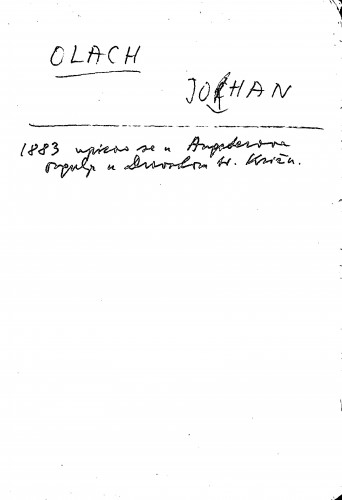 OLACH
JOHAN
1883 upisao se u Angsterova
orgulje u Hrvatskom sv. Križu.